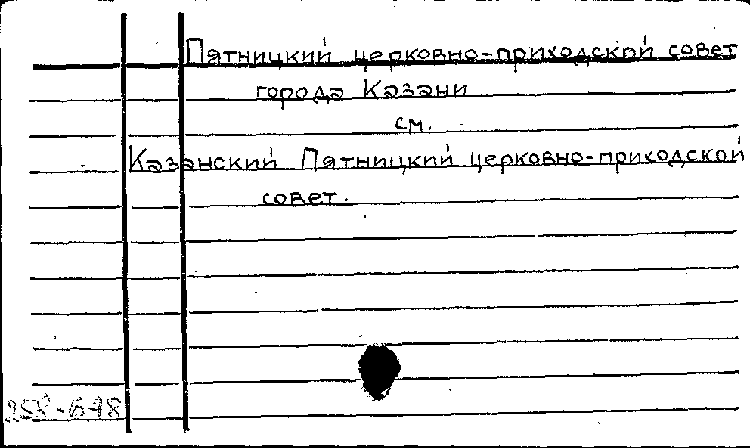 Пятницкий церковно-приходской совет
города Казани
см.
Казанский Пятницкий церковно-приходской
совет.